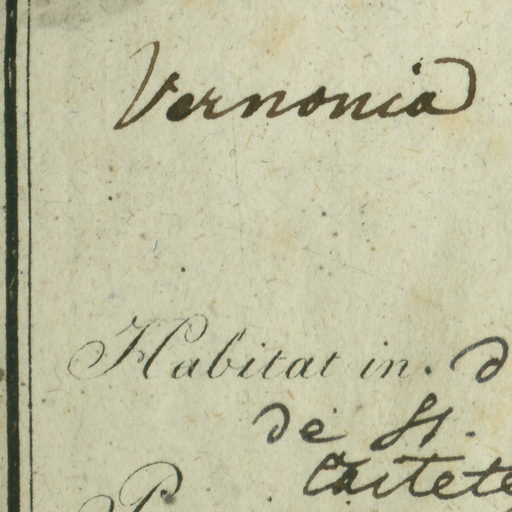 Vernonia
Habitat in. d
de St.